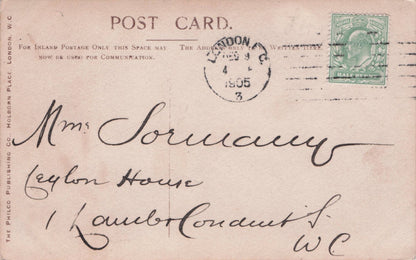 POST CARD.
FOR INLAND POSTAGE ONLY THIS SPACE MAY
NOW BE USED FOR COMMUNICATION.
THE ADDRESS ONLY TO BE WRITTEN HERE.
LONDON E.C.
4
1905
3
HALF PENNY
Mme Sormany
Ceylon House
1 Lambs Conduit S.
WC
THE PHILCO PUBLISHING CO. HOLBORN PLACE, LONDON, W.C.